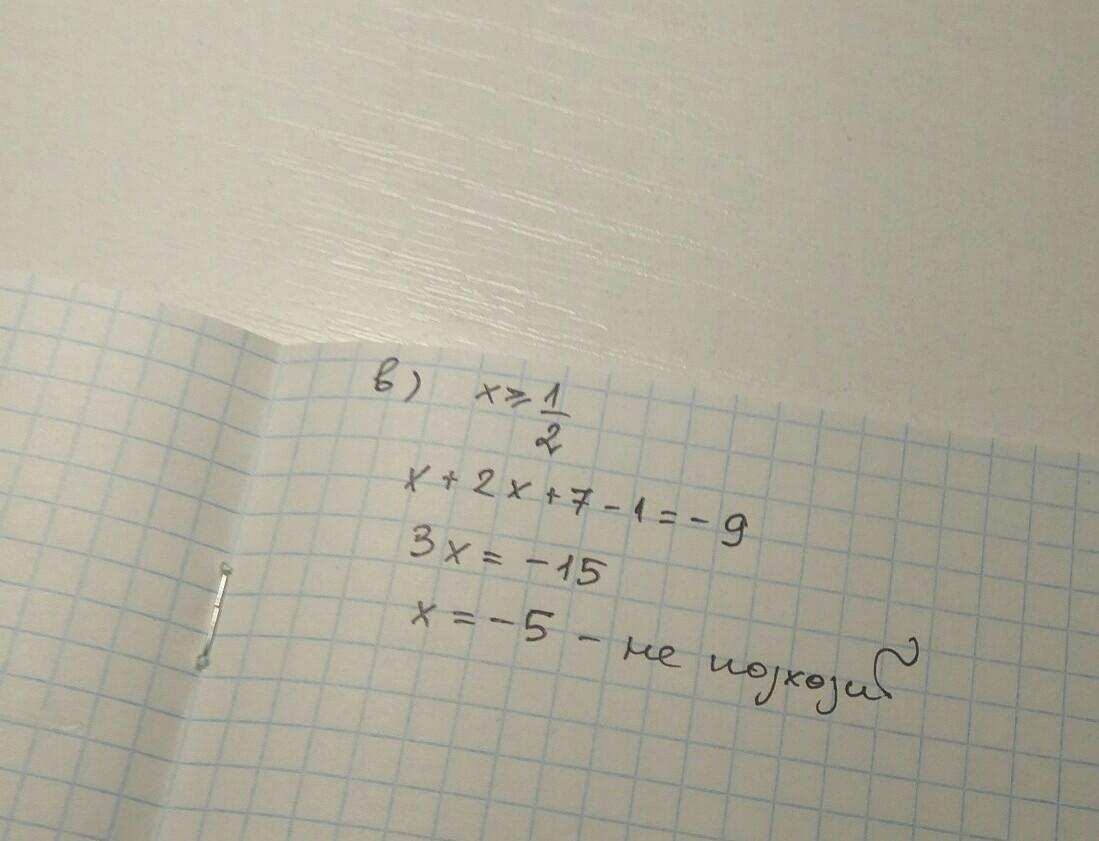 в) x ≥ 1/2
x + 2x + 7 - 1 = - 9
3x = - 15
x = - 5 - не подходит